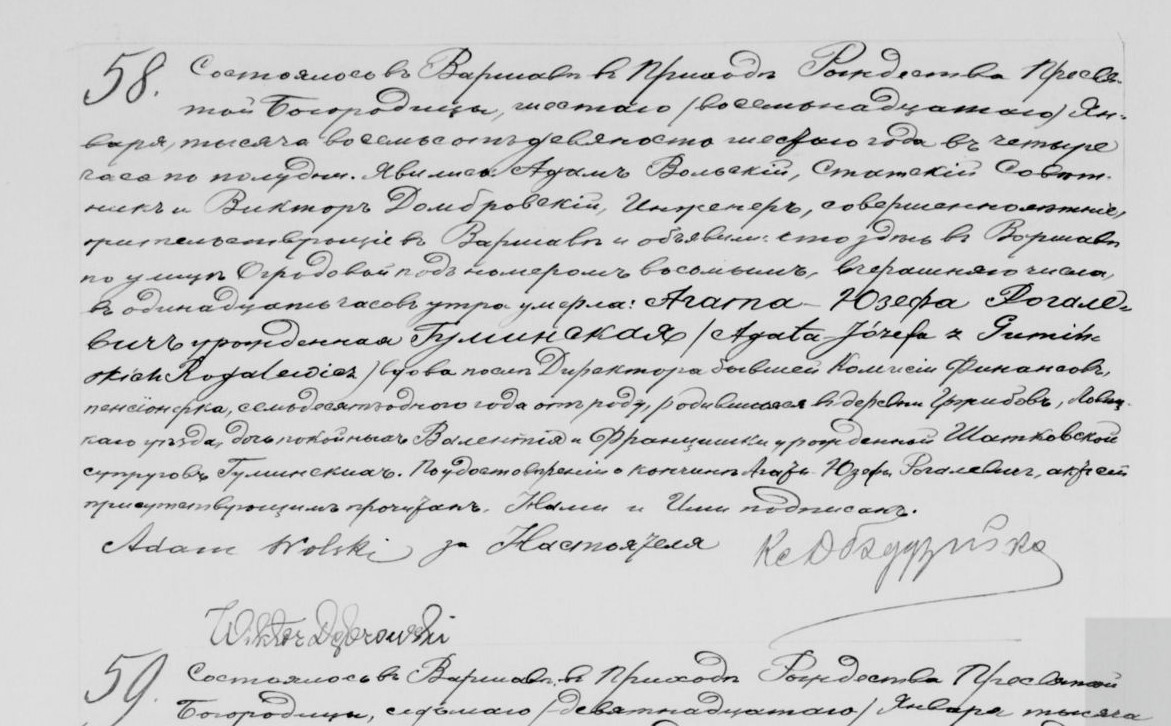 58. Состоялось въ Варшавѣ въ Приходѣ Рождества Пресвя-
той Богородицы, шестаго /восемьнадцатаго/ Ян-
варя, тысяча восемьсотъ девяносто шестаго года въ четыре
часа по полудни. Явились Адамъ Вольскій, Статскій Совѣт-
никъ и Викторъ Домбровскій, Инженеръ, совершеннолѣтніе,
жительствующіе въ Варшавѣ и объявили: что здѣсь въ Варшавѣ
по улицѣ Огродовой подъ номеромъ восьмымъ, вчерашняго числа,
въ одинадцать часовъ утра умерла: Агата-Юзефа Рогале-
вичъ урожденная Гуминская /Agata Józefa z Gumiń-
skich Rogalewicz/ вдова послѣ Директора бывшей Комисіи Финансовъ,
пенсіонерка, семьдесятъ одного года отъ роду, родившаяся въ деревни Гржибовъ, Ловиц-
каго уѣзда, дочь покойныхъ Валентія и Францишки урожденной Шатковской
супруговъ Гуминскихъ. По удостовѣреніи о кончинѣ Агаты Юзефы Рогалевичъ, актъ сей
присутствующимъ прочитанъ, Нами и Ими подписанъ.
Adam Wolski за Настоятеля Кс
Wiktor Dąbrowski
59. Состоялось въ Варшавѣ въ Приходѣ Рождества Пресвятой
Богородицы, седьмаго /девятнадцатаго/ Января тысяча